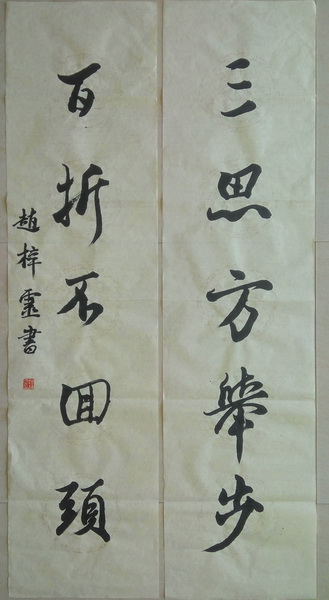 三思方舉步
百折不回頭
趙梓靈書